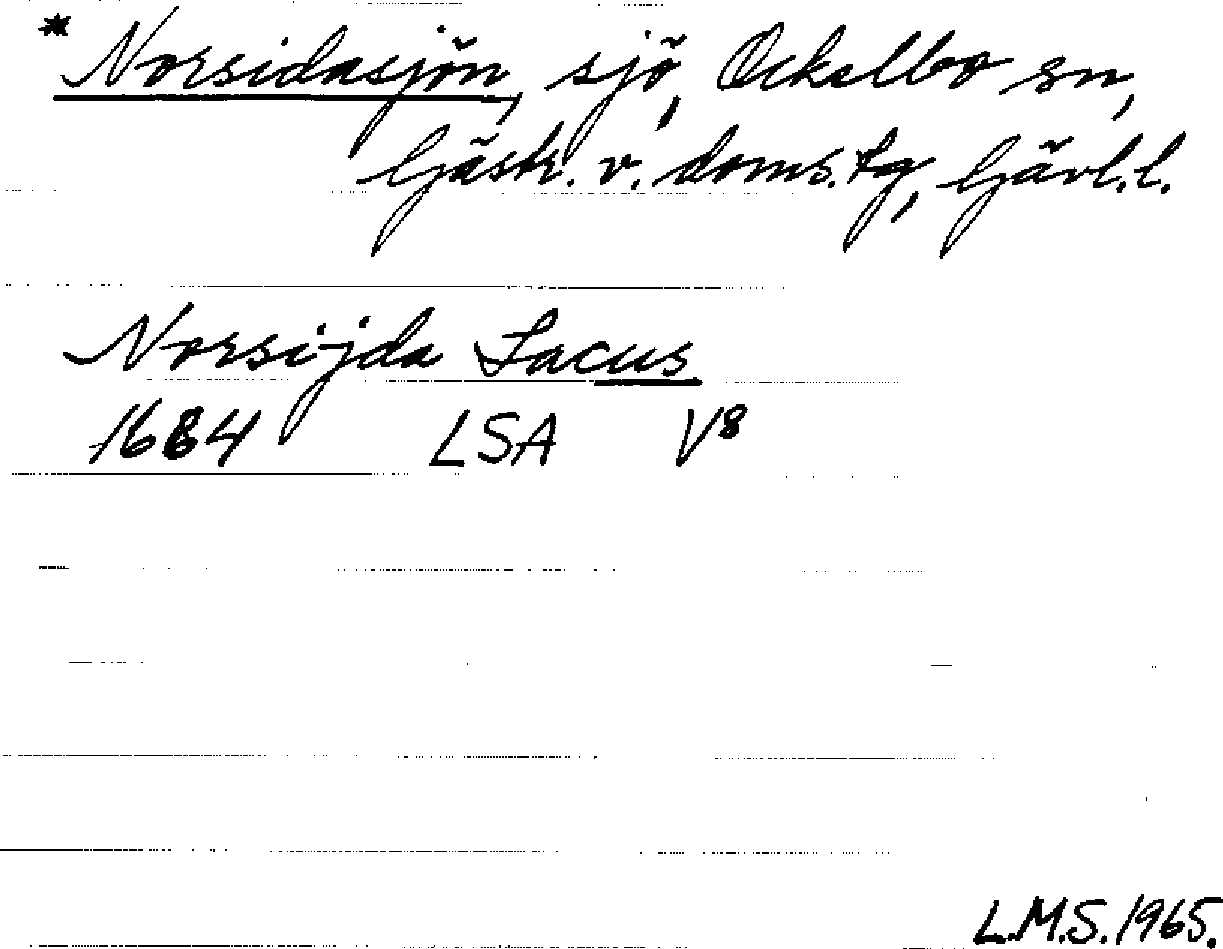 * Norsidasjön, sjö, Ockelbo sn,
Gästr. v. doms.tg, Gävl.l.
Norsijda Lacus
1684 LSA V8
L.M.S. 1965.